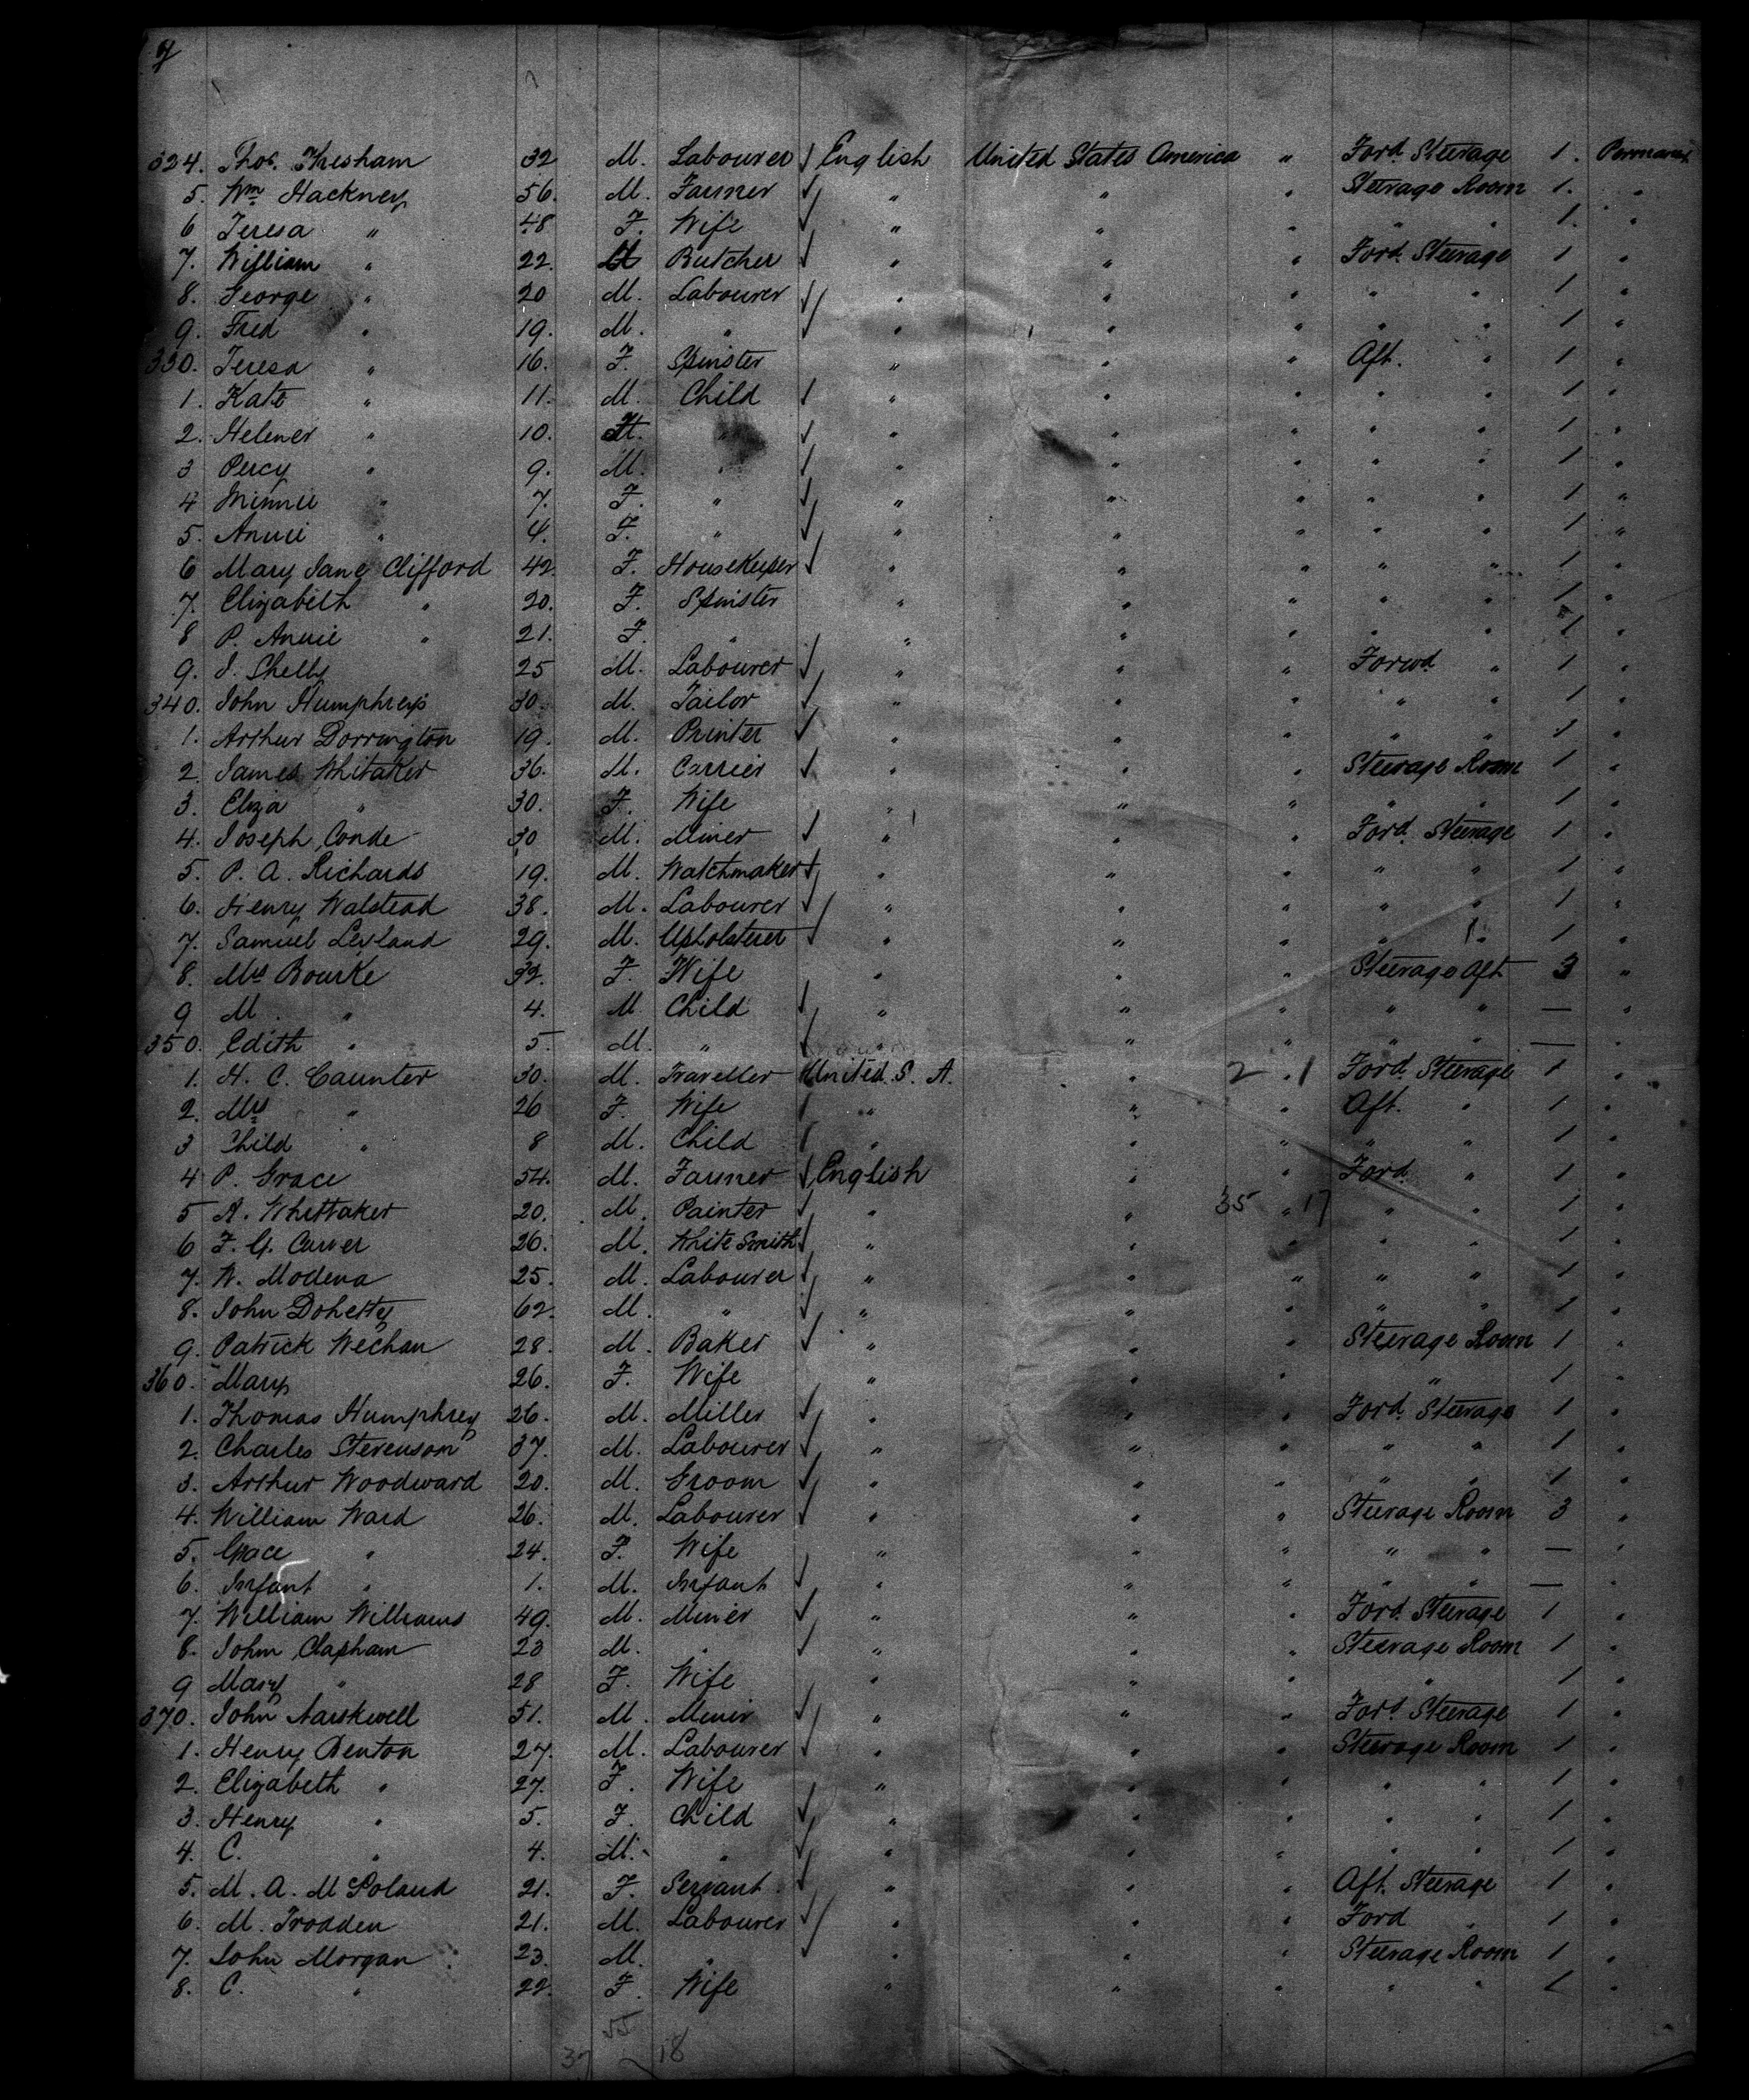 324. Thos. Kresham 32 M. Labourer English United States America " Ford. Steerage 1. Permanent
5. Wm Hackney 56. M. Farmer " " " Steerage Room 1. "
6 Teresa " 48 F. Wife " " " " " 1. "
7. William " 22. M Butcher " " " Ford. Steerage 1 "
8. George " 20 M. Labourer " " " " " 1 "
9. Fred " 19. M. " " " " " " 1 "
330. Teresa " 16. F. Spinster " " " Aft. " 1 "
1. Kate " 11. M. Child " " " " " 1 "
2. Helener " 10. " " " " " " 1 "
3 Percy " 9. M. " " " " " " 1 "
4 Minnie " 7. F. " " " " " " 1 "
5. Annie " 4. F. " " " " " " 1 "
6 Mary Jane Clifford 42. F. HouseKeeper " " " " " 1 "
7. Elizabeth " 20. F. Spinster " " " " " 1 "
8 P. Annie " 21. F. " " " " " " 1 "
9. J. Shelly 25 M. Labourer " " " Forwd. " 1 "
340. John Humphreys 30. M. Tailor " " " " " 1 "
1. Arthur Dorrington 19. M. Printer " " " " " 1 "
2. James Whitaker 36. M. Currier " " " Steerage Room 1 "
3. Eliza " 30. F. Wife " " " " " 1 "
4. Joseph Conde 30 M. Miner " " " Ford. Steerage 1 "
5. P. A. Richards 19. M. Watchmaker " " " " " 1 "
6. Henry Walstead 38. M. Labourer " " " " " 1 "
7. Samuel Leyland 29. M. Upholsterer " " " " " 1 "
8. Mrs Bourke 32. F. Wife " " " Steerage Aft 3 "
9 M. " 4. M Child " " " " " — "
350. Edith " 5. M. " " " " " " — "
1. H. C. Caunter 30. M. Traveller United. S. A. " 2 " 1 Ford. Steerage 1 "
2. Mrs " 26 F. Wife " " " Aft. " 1 "
3 Child " 8 M. Child " " " " " 1 "
4 P. Grace 54. M. Farmer English " " Ford. " 1 "
5 A. Whittaker 20. M. Painter " " 35 " 17 " " 1 "
6 F. G. Carver 26. M. White Smith " " " " " 1 "
7. W. Modena 25. M. Labourer " " " " " 1 "
8. John Doherty 62. M. " " " " " " 1 "
9. Patrick Wechan 28. M. Baker " " " Steerage Room 1 "
360. Mary 26. F. Wife " " " " 1 "
1. Thomas Humphrey 26. M. Miller " " " Ford. Steerage 1 "
2. Charles Stevenson 37. M. Labourer " " " " " 1 "
3. Arthur Woodward 20. M. Groom " " " " " 1 "
4. William Ward 26. M. Labourer " " " Steerage Room 3 "
5. Grace " 24. F. Wife " " " " " — "
6. Infant " 1. M. Infant " " " " " — "
7. William Williams 49. M. Miner " " " Ford. Steerage 1 "
8. John Clapham 23 M. " " " " Steerage Room 1 "
9 Mary " 28 F. Wife " " " " 1 "
370. John 51. M. Miner " " " Ford. Steerage 1 "
1. Henry Benton 27. M. Labourer " " " Steerage Room 1 "
2. Elizabeth " 27. F. Wife " " " " " 1 "
3. Henry " 5. F. Child " " " " " 1 "
4. C. " 4. M. " " " " " " 1 "
5. M. A. McPoland 21. F. Servant " " " Aft. Steerage 1 "
6. M. Trodden 21. M. Labourer " " " Ford " 1 "
7. John Morgan 23. M. " " " " Steerage Room 1 "
8. C. " 22. F. Wife " " " " " 1 "
55
37 18